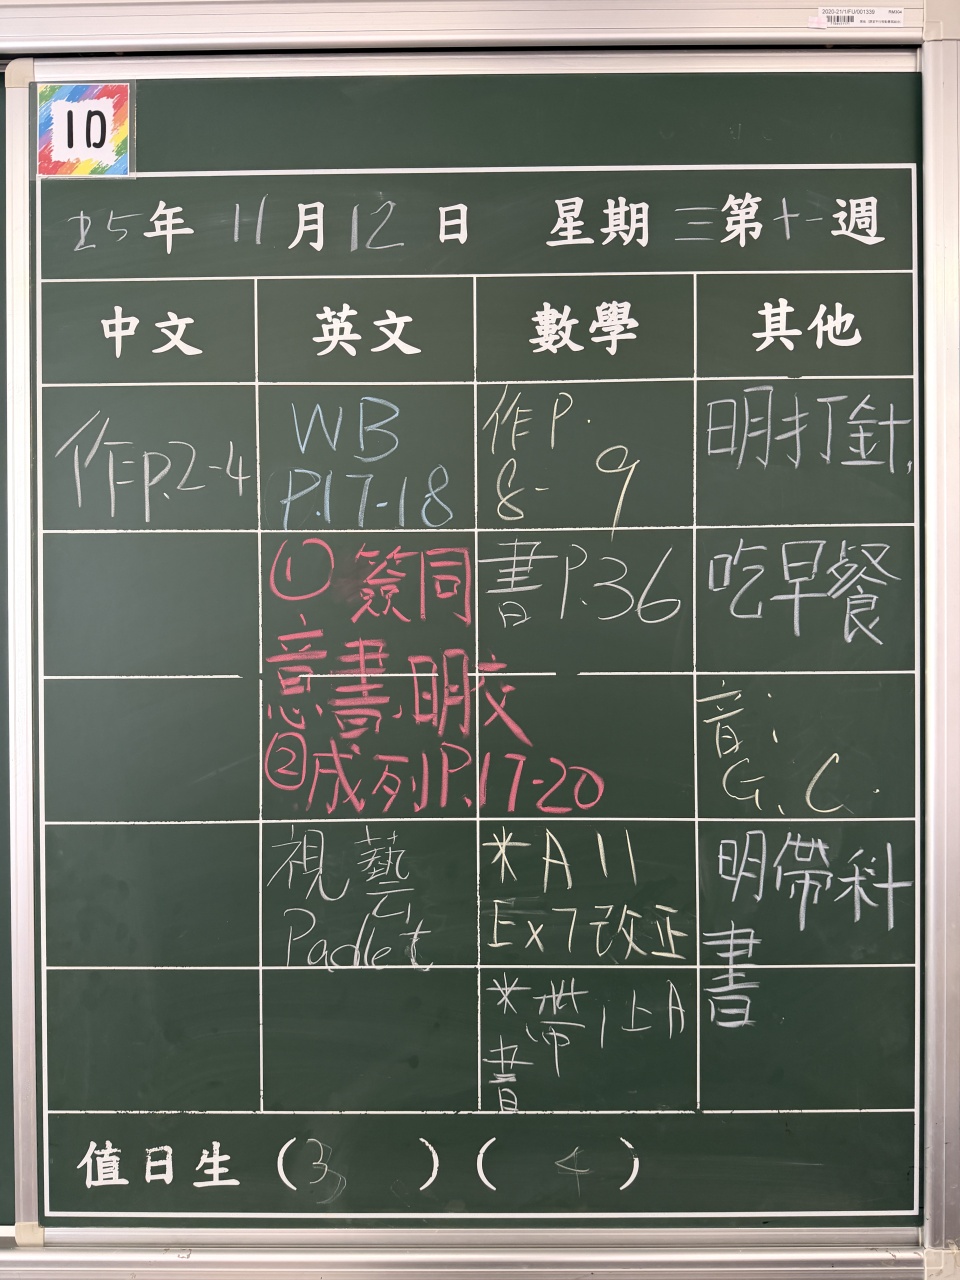 2020-21/1/FU/001339
1D
25年 11月12日 星期三第十一週
中文 英文 數學 其他
作P.2-4
WB
P.17-18
作P.
8-9
明打針,
①簽同
意書,明交
②成列P.17-20
書P.36
吃早餐
音:
G.C.
視藝
Padlet
*A11
Ex7改正
明帶科
書
*帶1上A
書
值日生(3)(4)